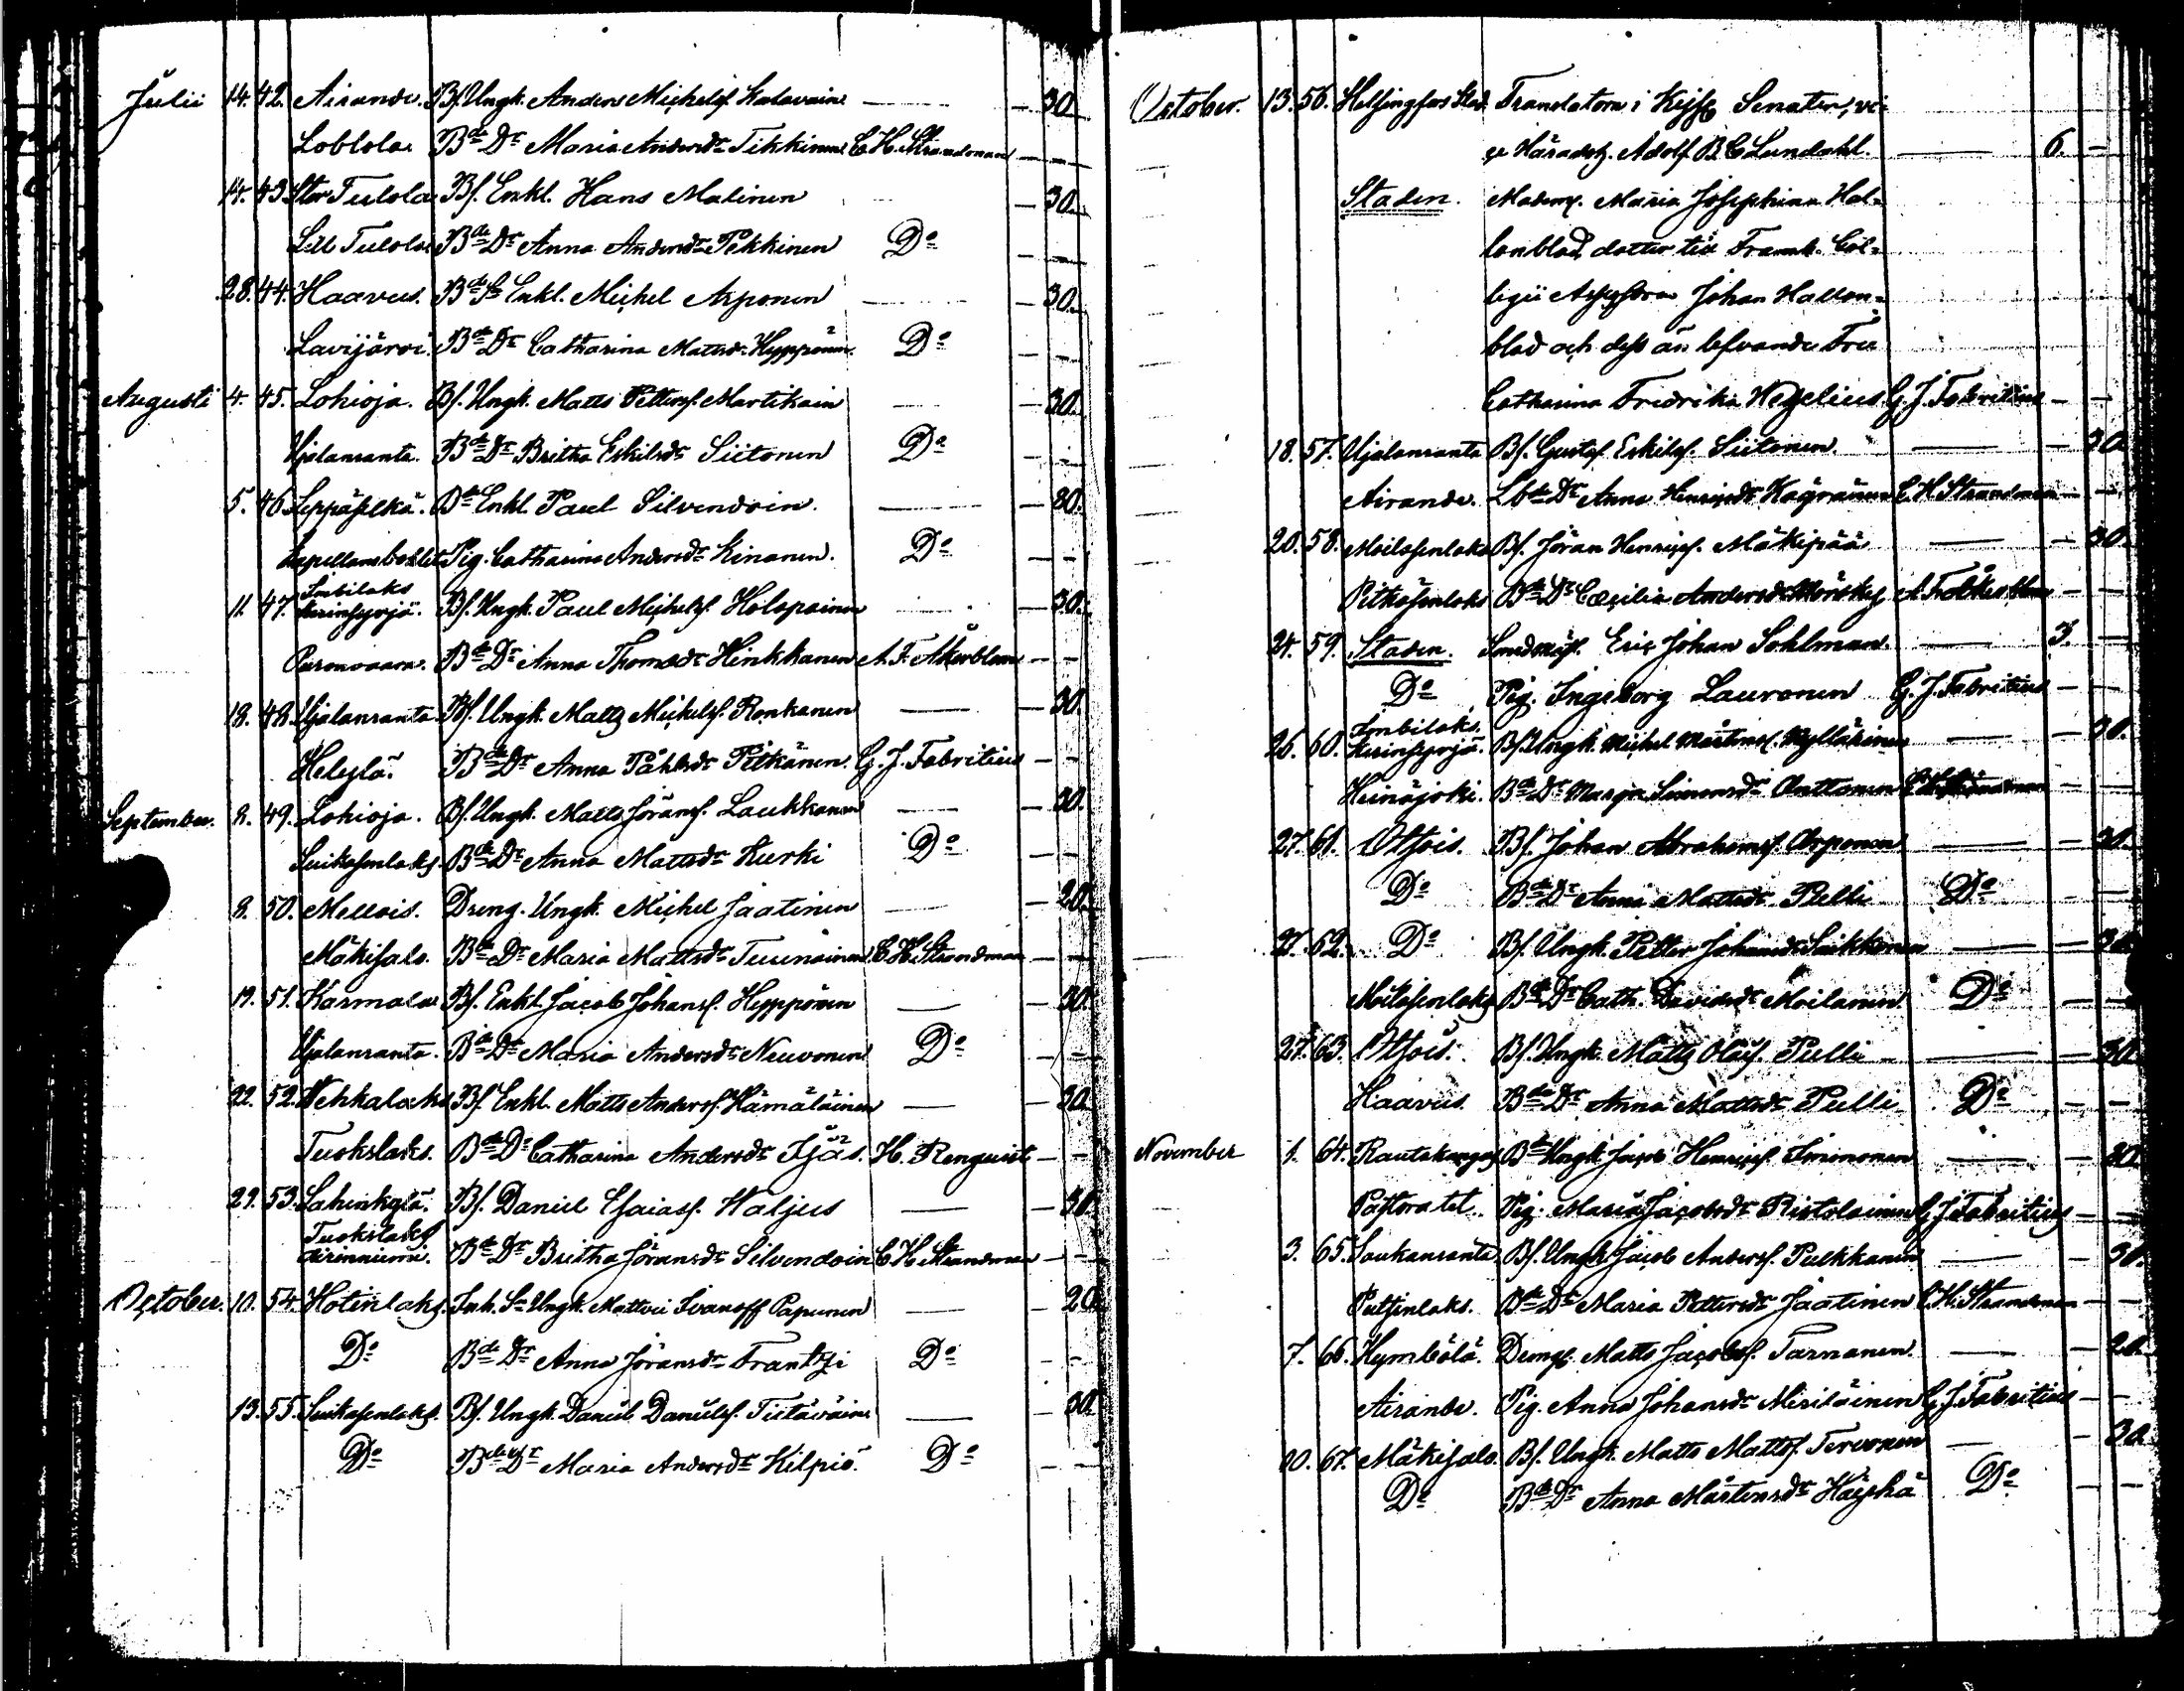 Julii 14. 42. Airande. Bs. Ungk. Anders Michelss. Kalavain — — 30.
Loblola Bde Dr Maria Andersdr Tikkinen C. H. Strandman — —
14. 43. Stor Tulola Bs. Enkl. Hans Malinen — 30.
Lill Tulola Bde Dr Anna Andersdr Pekkinen Do — —
28. 44. Haavus. Bde Sn Enkl. Michel Arponen — — 30.
Lavijärvi. Bde Dr Catharina Mattsdr Hyppönen Do — —
Augusti 4. 45. Lohioja. Bs. Ungk. Matts Petterss. Martikain — — 30.
Hjalansanta. Bde Dr Britha Eskilsdr Siitonen Do — —
5. 46. Leppäselkä. Bde Enkl. Paul Silvendoin. — — 30.
Capellansbohlet Pig. Catharina Andersdr Kinanen. Do — —
Imbilaks
11. 47. Bs. Ungk. Paul Michelss. Holopainen — — 30.
Puronvaara. Bde Dr Anna Thomasdr Hinkkanen A. F. Åkerblom — —
18. 48. Hjalansanta. Bs. Ungk. Matts Michelss. Ronkanen — — 30.
Helylä. Bde Dr Anna Påhlsdr Pitkänen. G. J. Fabritius — —
September. 8. 49. Lohioja. Bs. Ungk. Matts Jöranss. Laukkanen — — 30.
Suikasenlaks. Bde Dr Anna Mattsdr Kurki Do — —
8. 50. Mellois. Dreng. Ungk. Michel Jaatinen — — 20.
Mäkisalo. Bde Dr Maria Mattsdr Tuunainen C. H. Strandman — —
19. 51. Karmala Bs. Enkl. Jacob Johanss. Hyppönen — — 30.
Hjalansanta. Bde Dr Maria Andersdr Neuvonen Do — —
22. 52. Wehkalaks Bs. Enkl. Matts Anderss. Hämäläinen — — 30.
Tuokslaks. Bde Dr Catharina Andersdr Ijäs. H. Renquist — —
29. 53. Lahenkylä. Bs. Daniel Esaiass. Waljus — — 30.
Tuokslaks
Bde Dr Britha Jöransdr Silvendoin C. H. Strandman — —
October. 10. 54. Hotinlaks. Inh. Sn Ungk. Mattvei Ivanoff Papunen — — 20.
Do Bde Dr Anna Jöransdr Frantsi Do — —
13. 55. Suikasenlaks. Bs. Ungk. Daniel Danielss. Tiitäväin — — 30.
Do Bde Dr Maria Andersdr Kilpiö. Do — —
October. 13. 56. Helsingfors Stad. Translatorn i Kejs. Senaten, vi-
ce Häradsh. Adolf B. C. Lundahl. — 6. —
Staden. Madems. Maria Josephina Hal-
lonblad, dotter till Framl. Col-
legii Assessorn Johan Hallon-
blad och dess än lefvande Fru
Catharina Fredrika Hegelius G. J. Fabritius — —
18. 57. Hjalansanta Bs. Gustaf Eskilss. Siitonen. — — 30.
Airande. Lbde Dr Anna Henricsdr C. H. Strandman — —
20. 58. Moilasenlaks Bs. Jöran Henricss. Mäkipää — — 30.
Pitkäsenlaks Bde Dr Cæcilia Andersdr Mörsky A. F. Åkerblom — —
24. 59. Staden. Eric Johan Sohlman. — 3. —
Do Pig. Ingeborg Lauronen G. J. Fabritius — —
Imbilaks.
26. 60. Bs. Ungk. Michel Mårtenss. Mylläkinen — — 30.
Heinäjoki. Bde Dr Marja Simonsdr Anttonen C. H. Strandman — —
27. 61. Otsois. Bs. Johan Abrahamss. Arponen — — 30.
Do Bde Dr Anna Mattsdr Pulli Do — —
27. 62. Do Bs. Ungk. Petter Johanss. Suikkonen — — 30.
Moilasenlaks Bde Dr Cath. Davidsdr Moilanen. Do — —
27. 63. Otsois. Bs. Ungk. Matts Olofs. Pulli — — 30.
Haavus. Bde Dr Anna Mattsdr Pulli Do — —
November 1. 64. Rautakangas Bde Ungk. Jacob Henricss. Imimonen — — 30.
Pastoratet. Pig. Maria Jacobsdr Ristolainen G. J. Fabritius — —
3. 65. Soukansanta Bs. Ungk. Jacob Anderss. Pulkkanen — — 30.
Putsinlaks. Bde Dr Maria Pettersdr Jaatinen C. H. Strandman — —
7. 66. Hymbölä. Drengs. Matts Jacobss. Tarnanen. — — 20.
Airande. Pig. Anna Johansdr Miriläinen G. J. Fabritius — —
10. 67. Mäkisalo. Bs. Ungk. Matts Mattss. Tervonen — — 30.
Do Bde Dr Anna Mårtensdr Häyhä Do — —